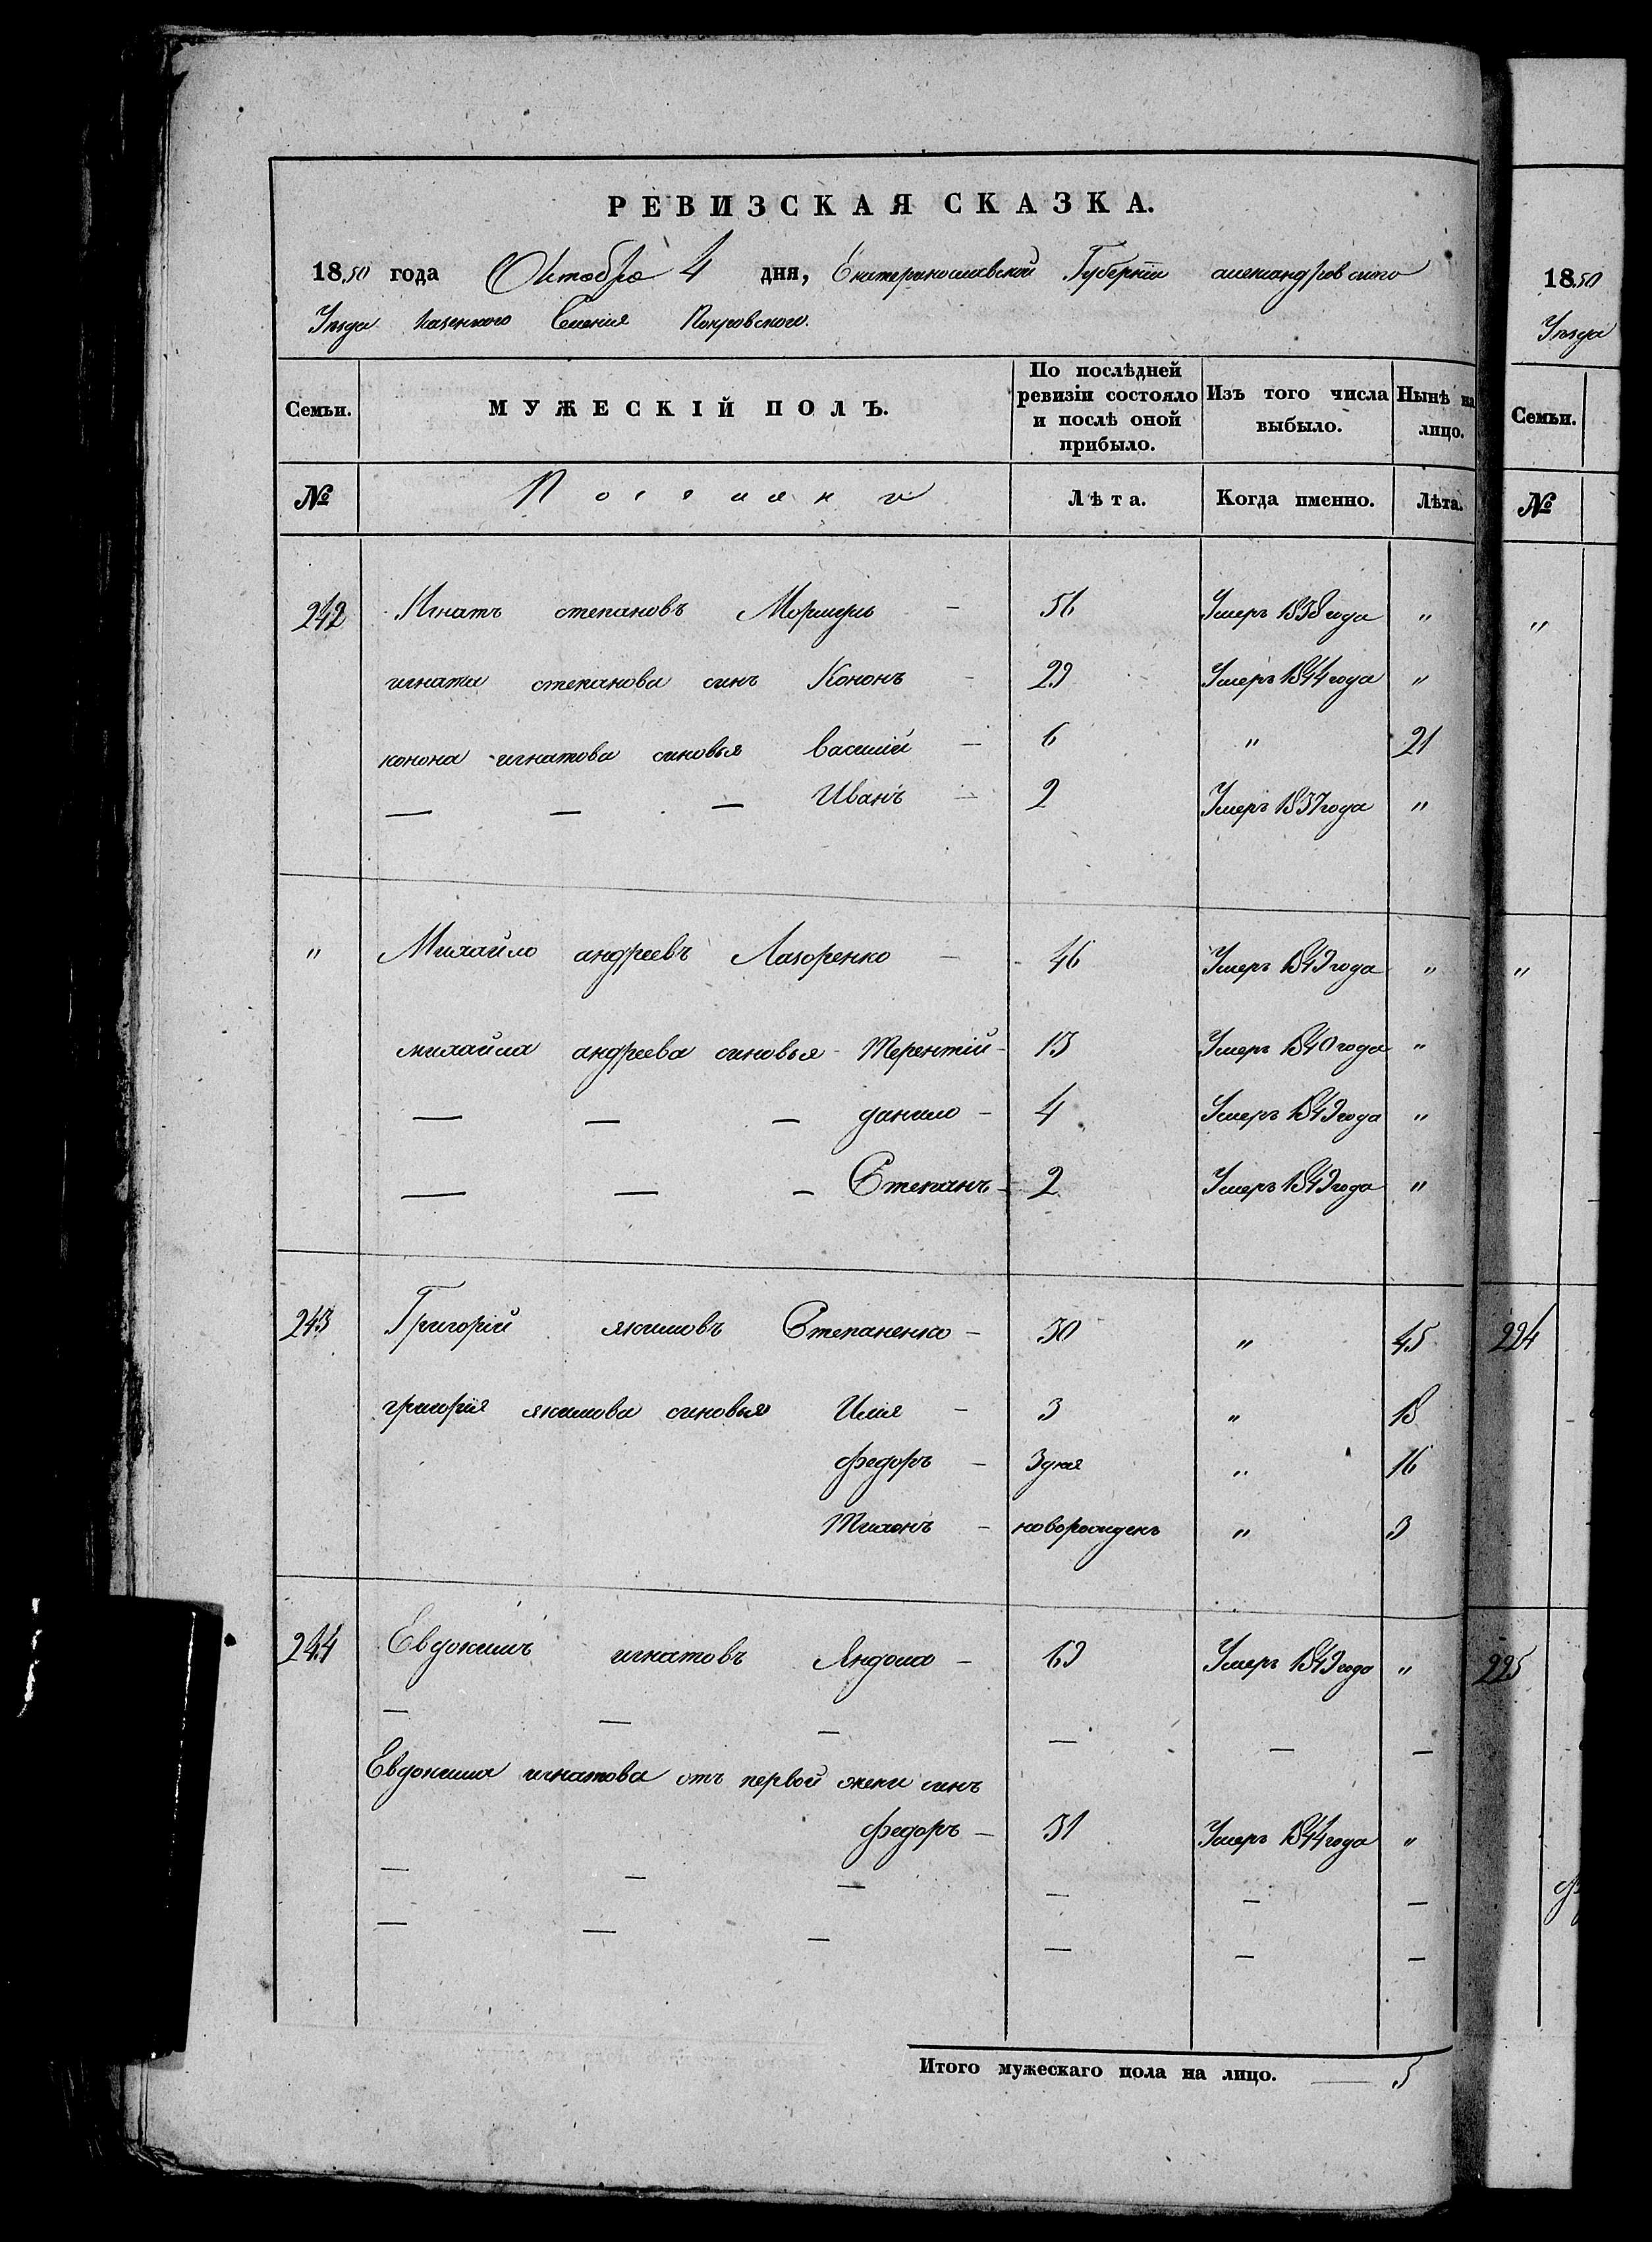 РЕВИЗСКАЯ СКАЗКА.
1850 года Октября 4 дня, Екатеринославской Губернии александровского
Уѣзда казенного Селенія Покровского.
Семьи. МУЖЕСКІЙ ПОЛЪ. По послѣдней ревизіи состояло и послѣ оной прибыло. Изъ того числа выбыло. Ныне на лицо.
№ Поселяне Лѣта. Когда именно. Лѣта.
242 Игнатъ степановъ - 56 Умеръ 1838 года "
игната степанова синъ Кононъ - 29 Умеръ 1844 года "
конона игнатова синовья василій - 6 " 21
— — — Иванъ - 2 Умеръ 1837 года "
" Михайло андреевъ Лазоренко - 46 Умеръ 1849 года "
михайла андреева синовья Терентій - 13 Умеръ 1840 года "
— — — данило - 4 Умеръ 1849 года "
— — — Степанъ - 2 Умеръ 1849 года "
243 Григорій якимовъ Степаненко - 30 " 45
григорія якимова синовья Илія - 3 " 18
федоръ - 3 дня " 16
Тихонъ - новорожденъ " 3
244 Евдокимъ игнатовъ - 69 Умеръ 1849 года "
— — — — — —
Евдокима игнатова отъ первой жени синъ
федоръ - 31 Умеръ 1844 года "
— — — — — —
— — — — — —
Итого мужескаго пола на лицо. — 5
1850
Уѣзда
Семьи.
№
"
"
224
225